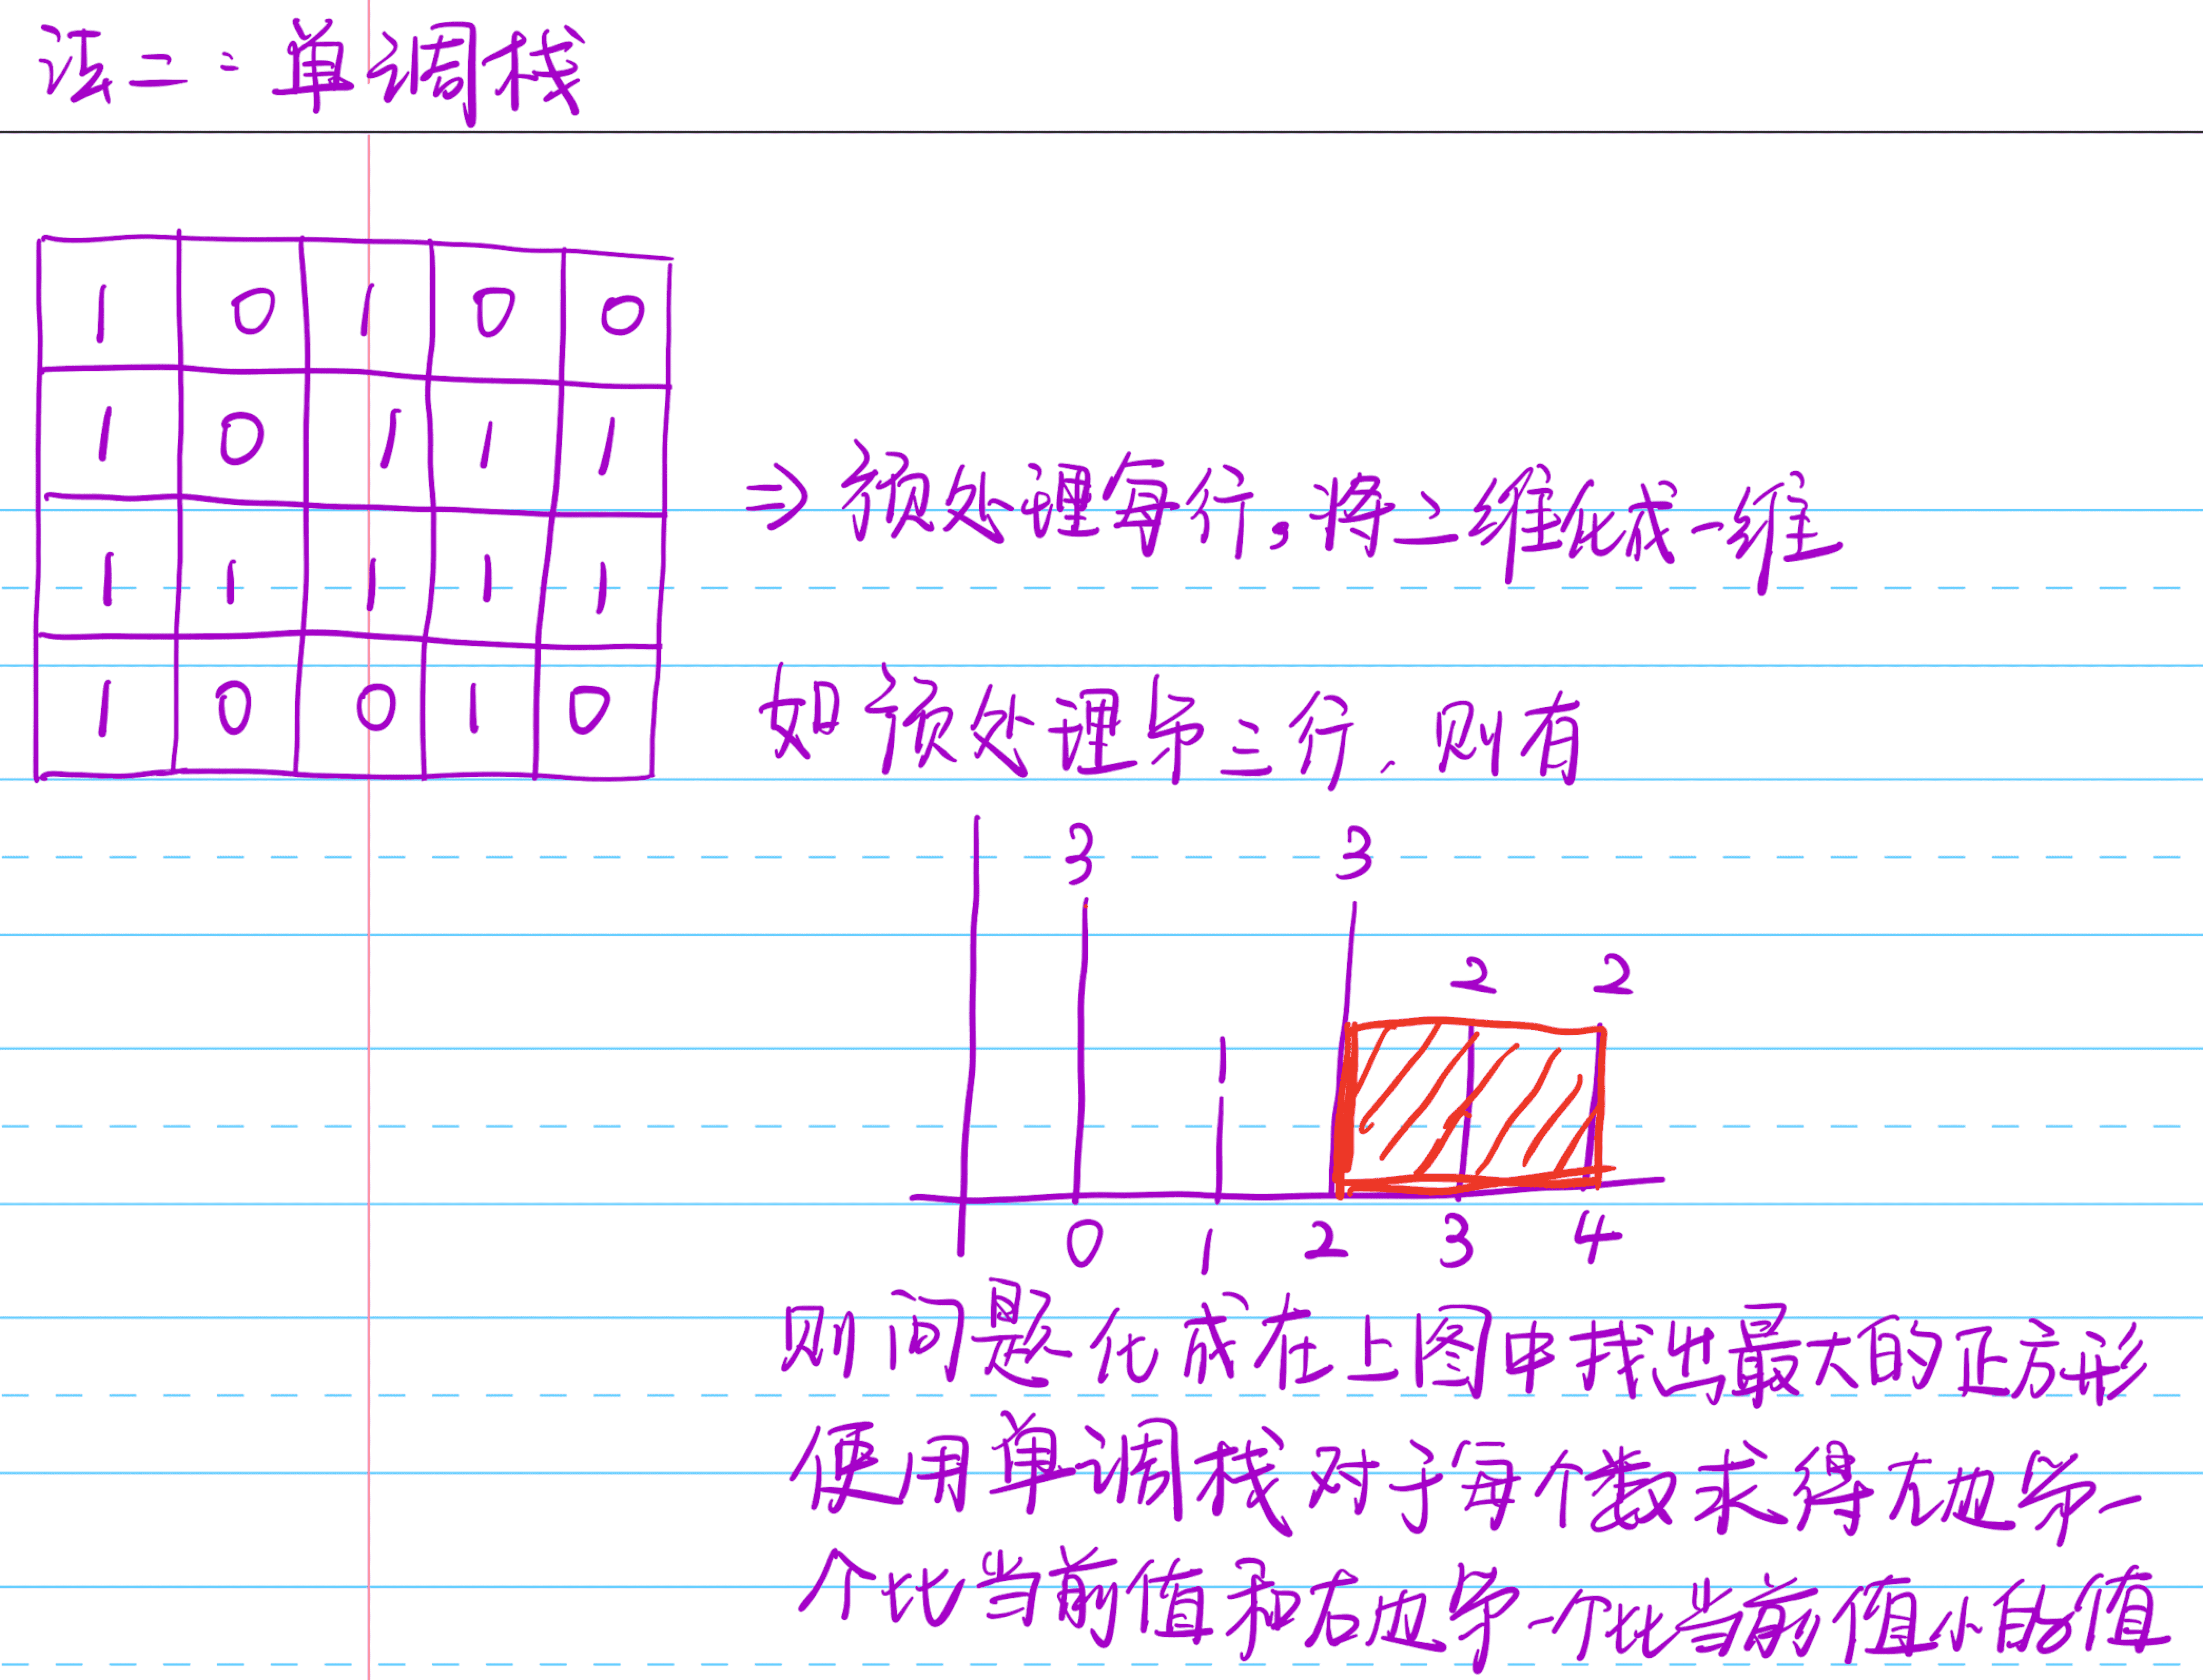 法二:单调栈
1 0 1 0 0
1 0 1 1 1
1 1 1 1 1
1 0 0 1 0
=> 预处理每行,将二维化成一维
如预处理第三行,则有
3 1 3 2 2
0 1 2 3 4
则问题化成在上图中找出最大的正方形
使用单调栈对于每个数求得左边第一
个比当前值和右边第一个比当前值小的值